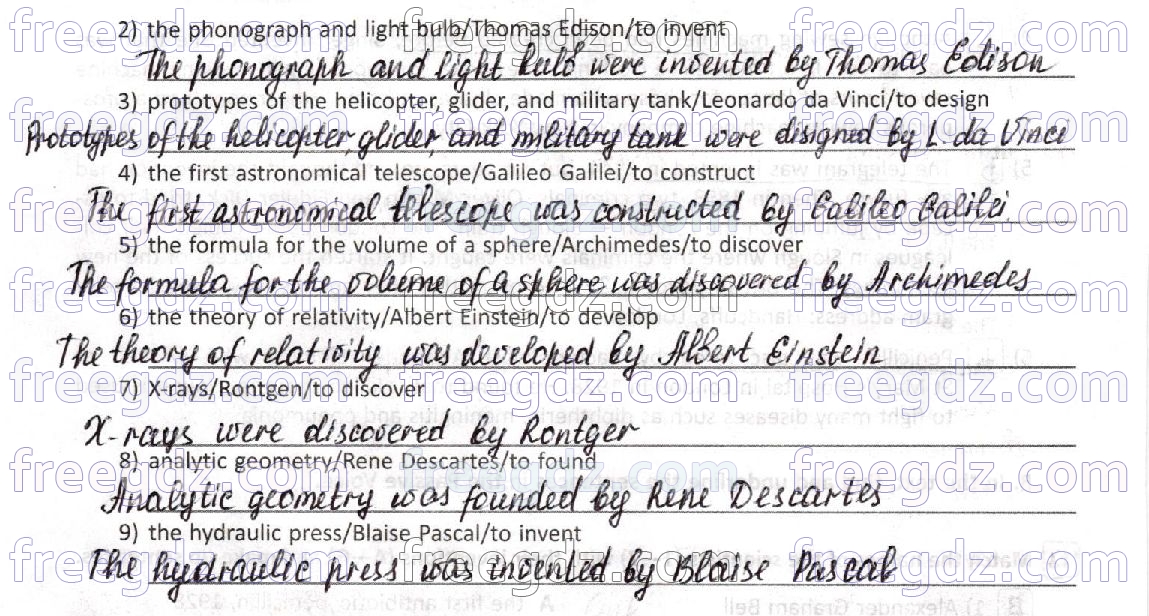 2) the phonograph and light bulb/Thomas Edison/to invent
The phonograph and light bulb were invented by Thomas Edison
3) prototypes of the helicopter, glider, and military tank/Leonardo da Vinci/to design
Prototypes of the helicopter, glider, and military tank were disigned by L. da Vinci
4) the first astronomical telescope/Galileo Galilei/to construct
The first astronomical telescope was constructed by Galileo Galilei.
5) the formula for the volume of a sphere/Archimedes/to discover
The formula for the volume of a sphere was discovered by Archimedes
6) the theory of relativity/Albert Einstein/to develop
The theory of relativity was developed by Albert Einstein
7) X-rays/Rontgen/to discover
X-rays were discovered by Rontger
8) analytic geometry/Rene Descartes/to found
Analytic geometry was founded by Rene Descartes
9) the hydraulic press/Blaise Pascal/to invent
The hydraulic press was invented by Blaise Pascal